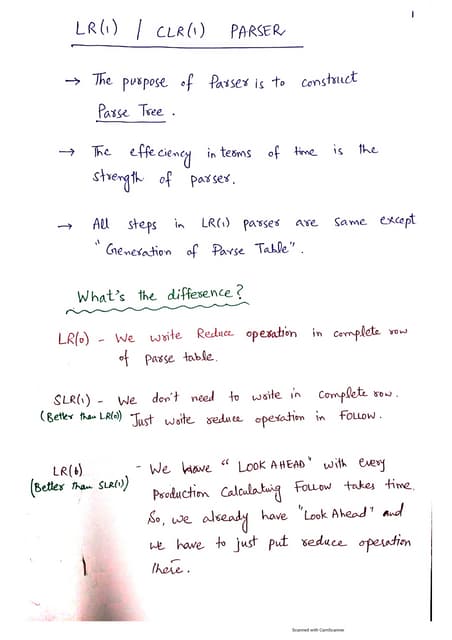 1
LR(1) / CLR(1) PARSER
→ The purpose of Parser is to construct
Parse Tree.
→ The effeciency in terms of time is the
strength of parser.
→ All steps in LR(1) parser are same except
"Generation of Parse Table".
What's the difference?
LR(0) - We write Reduce operation in complete row
of parse table.
SLR(1) - We don't need to write in complete row.
(Better than LR(0)) Just write reduce operation in FOLLOW.
LR(1) - We have "LOOK AHEAD" with every
(Better than SLR(1)) Production Calculating Follow takes time.
So, we already have "Look Ahead" and
we have to just put reduce operation
there.
Scanned with CamScanner